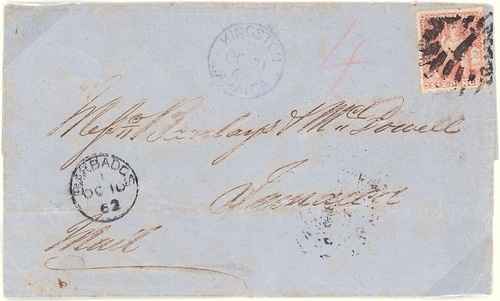 KINGSTON
JAMAICA
4
Messrs Barclays & McDowell
BARBADOS
1
OC 10
62
Jamaica
Mail